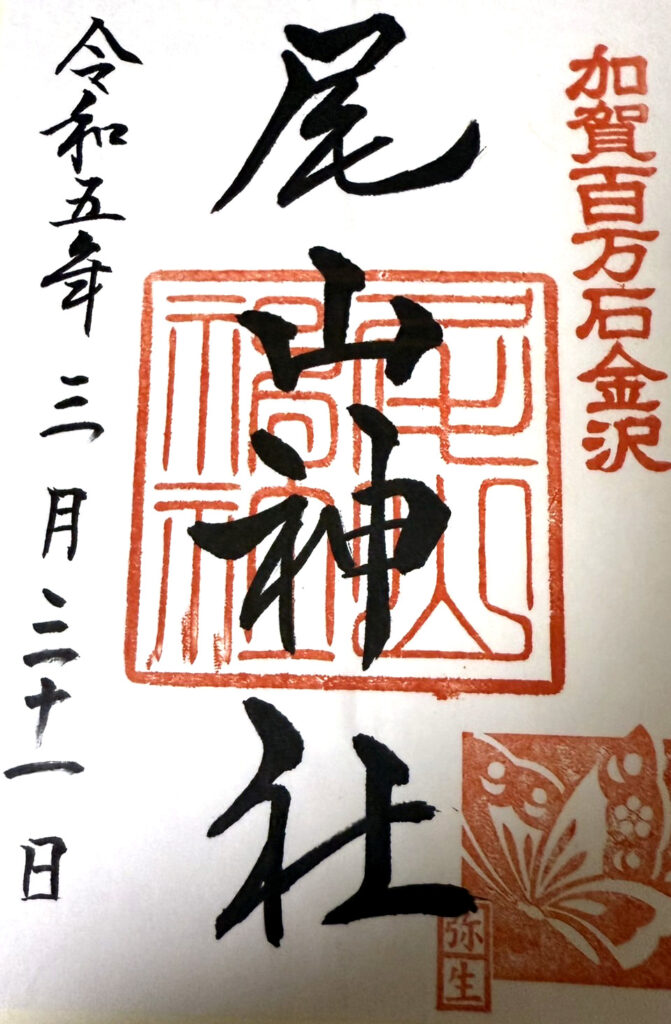 加賀百万石金沢
尾山神社
尾山神社
令和五年三月三十一日
弥生